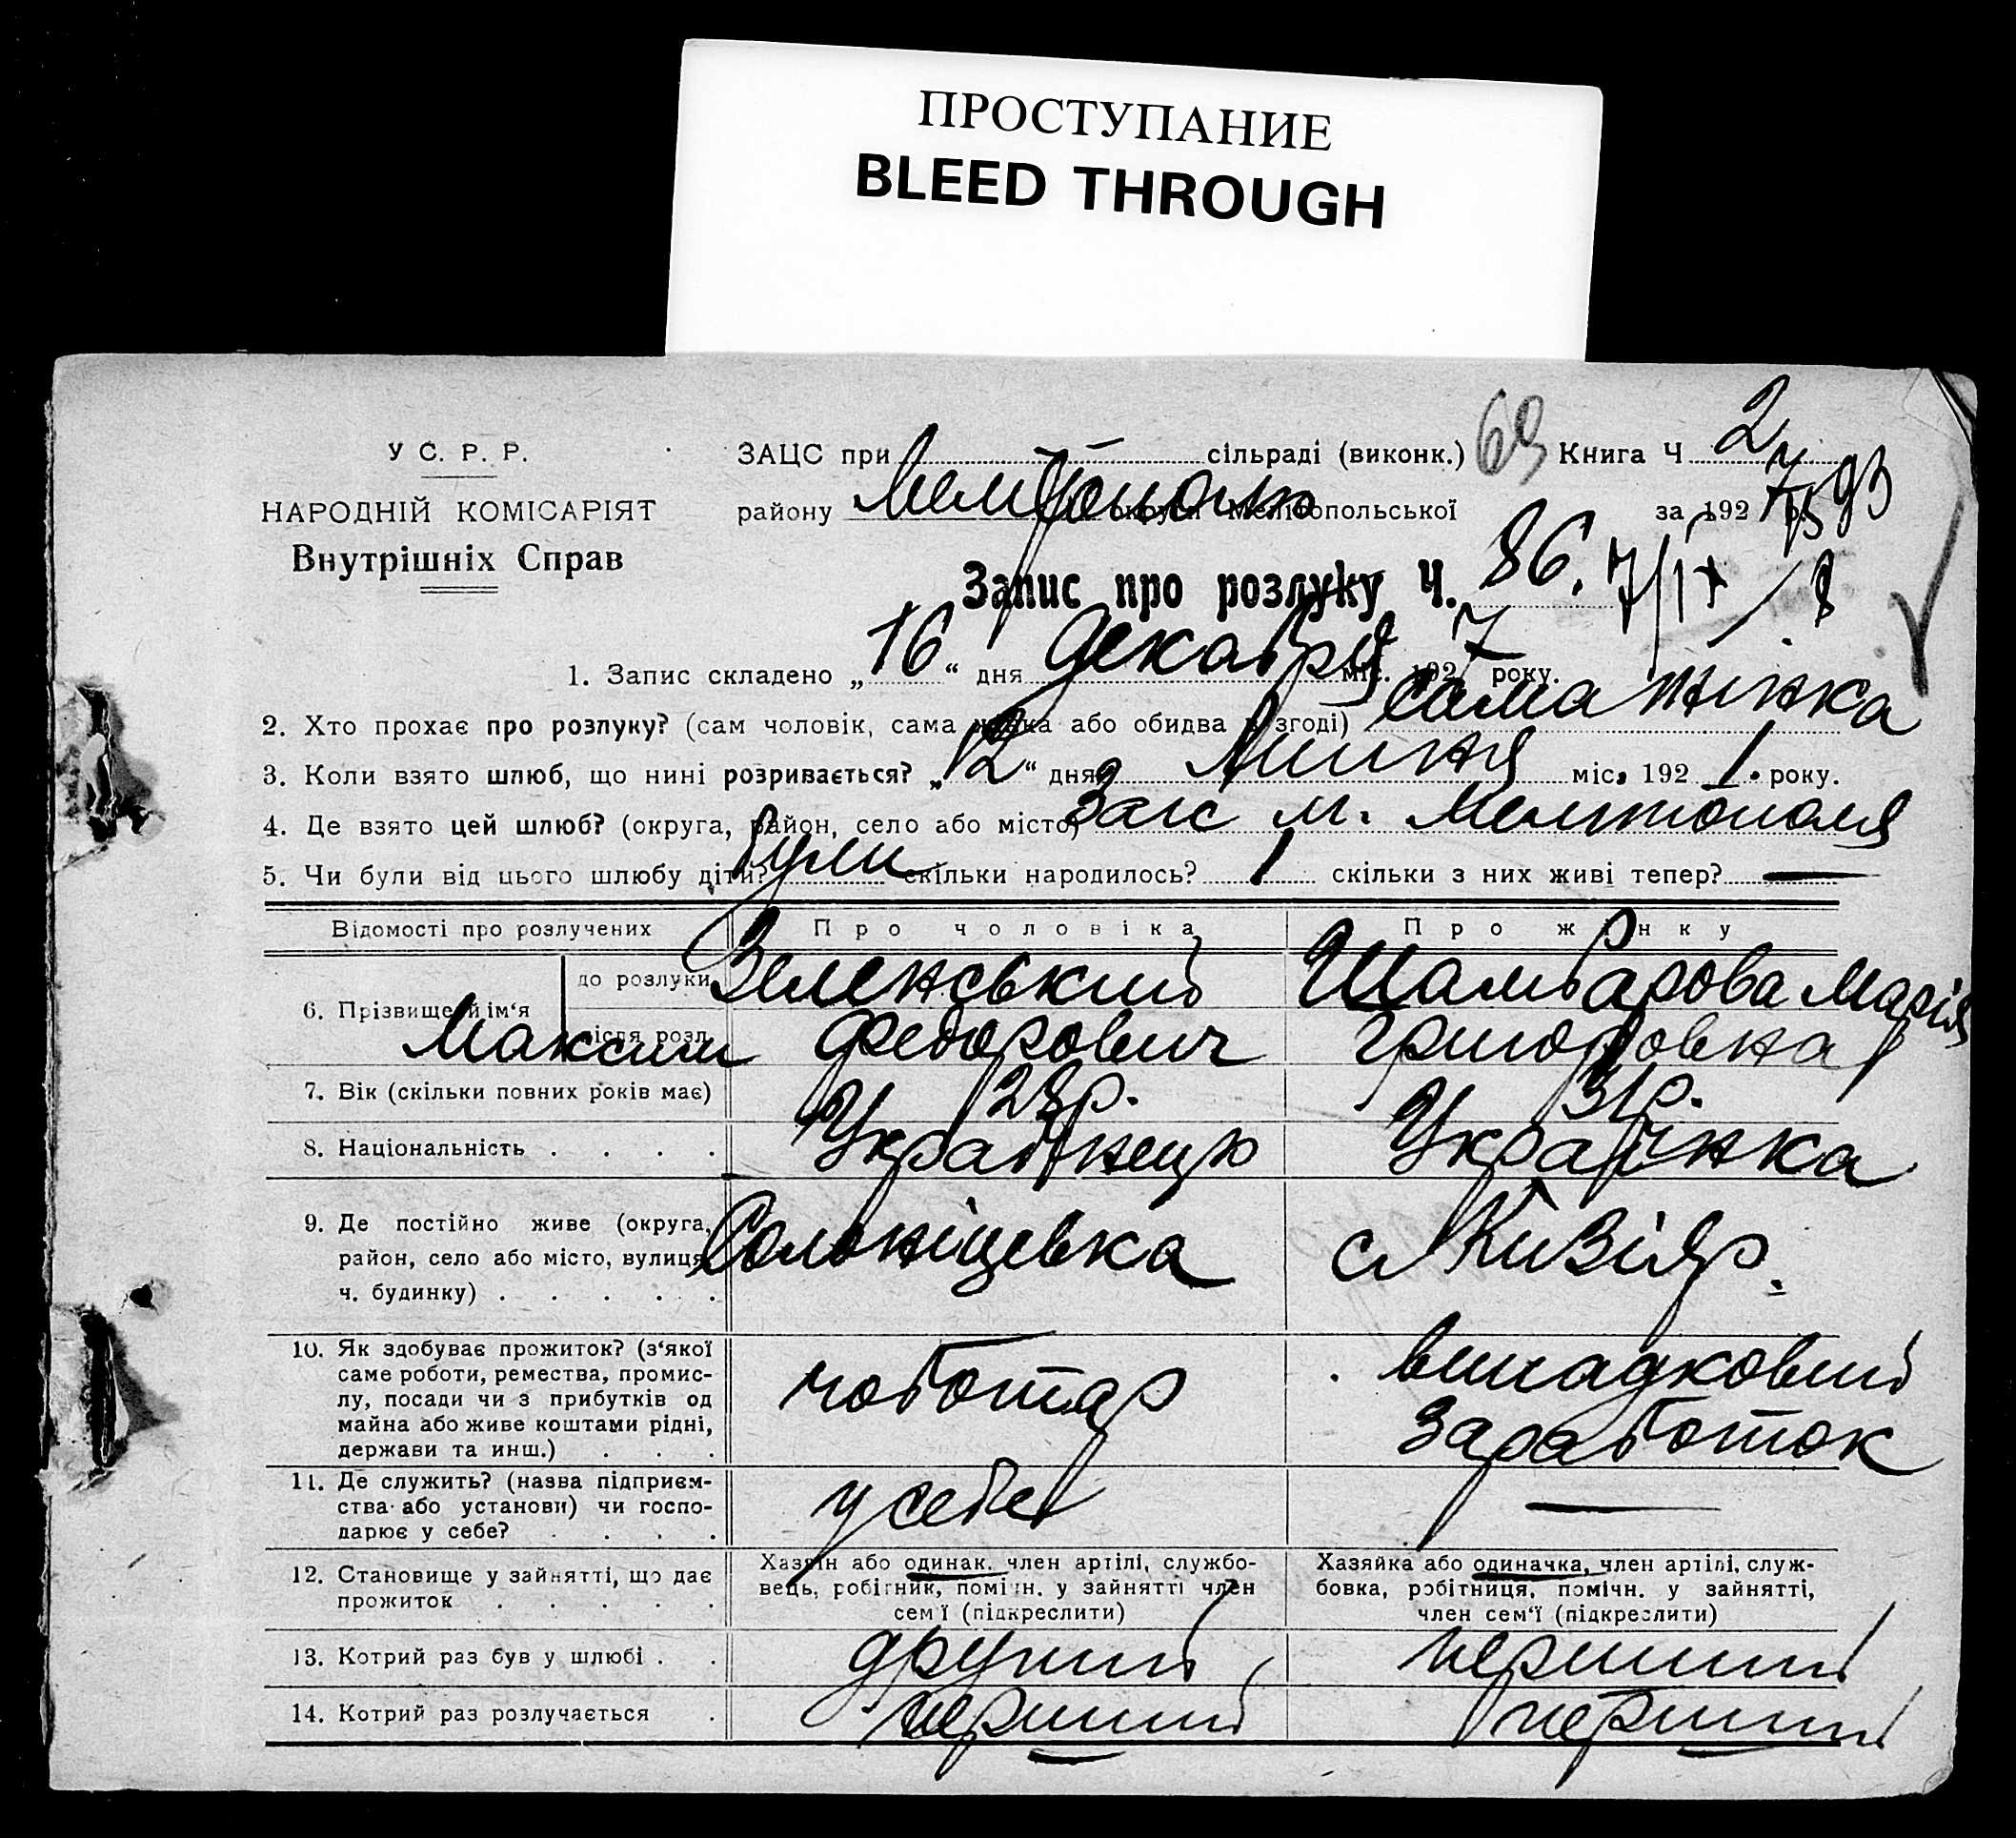 ПРОСТУПАНИЕ
BLEED THROUGH
У С. Р. Р.
НАРОДНІЙ КОМІСАРІЯТ
Внутрішніх Справ
ЗАЦС при сільраді (виконк.) 69 Книга Ч 2
району Мелітополь округи Мелітопольської за 1927 р. 93
Запис про розлуку Ч. 86.
1. Запис складено „16“ дня Декабря міс. 1927 року.
2. Хто прохає про розлуку? (сам чоловік, сама жінка або обидва в згоді) сама жінка
3. Коли взято шлюб, що нині розривається? „12“ дня Липня міс. 1921. року.
4. Де взято цей шлюб? (округа, район, село або місто) Загс м. Мелітополя
5. Чи були від цього шлюбу діти? Були скільки народилось? 1 скільки з них живі тепер? —
Відомості про розлучених Про чоловіка Про жінку
6. Прізвище й ім'я до розлуки Зеленський Шамбарова Марія
після розл. Максим Федорович Григоровна
7. Вік (скільки повних років має) 28р. 31р.
8. Національність . . . . Українець Українка
9. Де постійно живе (округа,
район, село або місто, вулиця
ч. будинку) . . . . .
Солоніцевка
с Кизіяр.
10. Як здобуває прожиток? (з'якої
саме роботи, ремества, промис-
лу, посади чи з прибутків од
майна або живе коштами рідні,
держави та инш.) . . .
чоботар
випадковий
заработок
11. Де служить? (назва підприєм-
ства або установи) чи госпо-
дарює у себе? . . . .
у себе
—
12. Становище у зайнятті, що дає
прожиток . . . . .
Хазяїн або одинак, член артілі, службо-
вець, робітник, помічн. у зайнятті член
сем'ї (підкреслити)
Хазяйка або одиначка, член артілі, служ-
бовка, робітниця, помічн. у зайнятті,
член сем'ї (підкреслити)
13. Котрий раз був у шлюбі . . другий перший
14. Котрий раз розлучається . перший перший